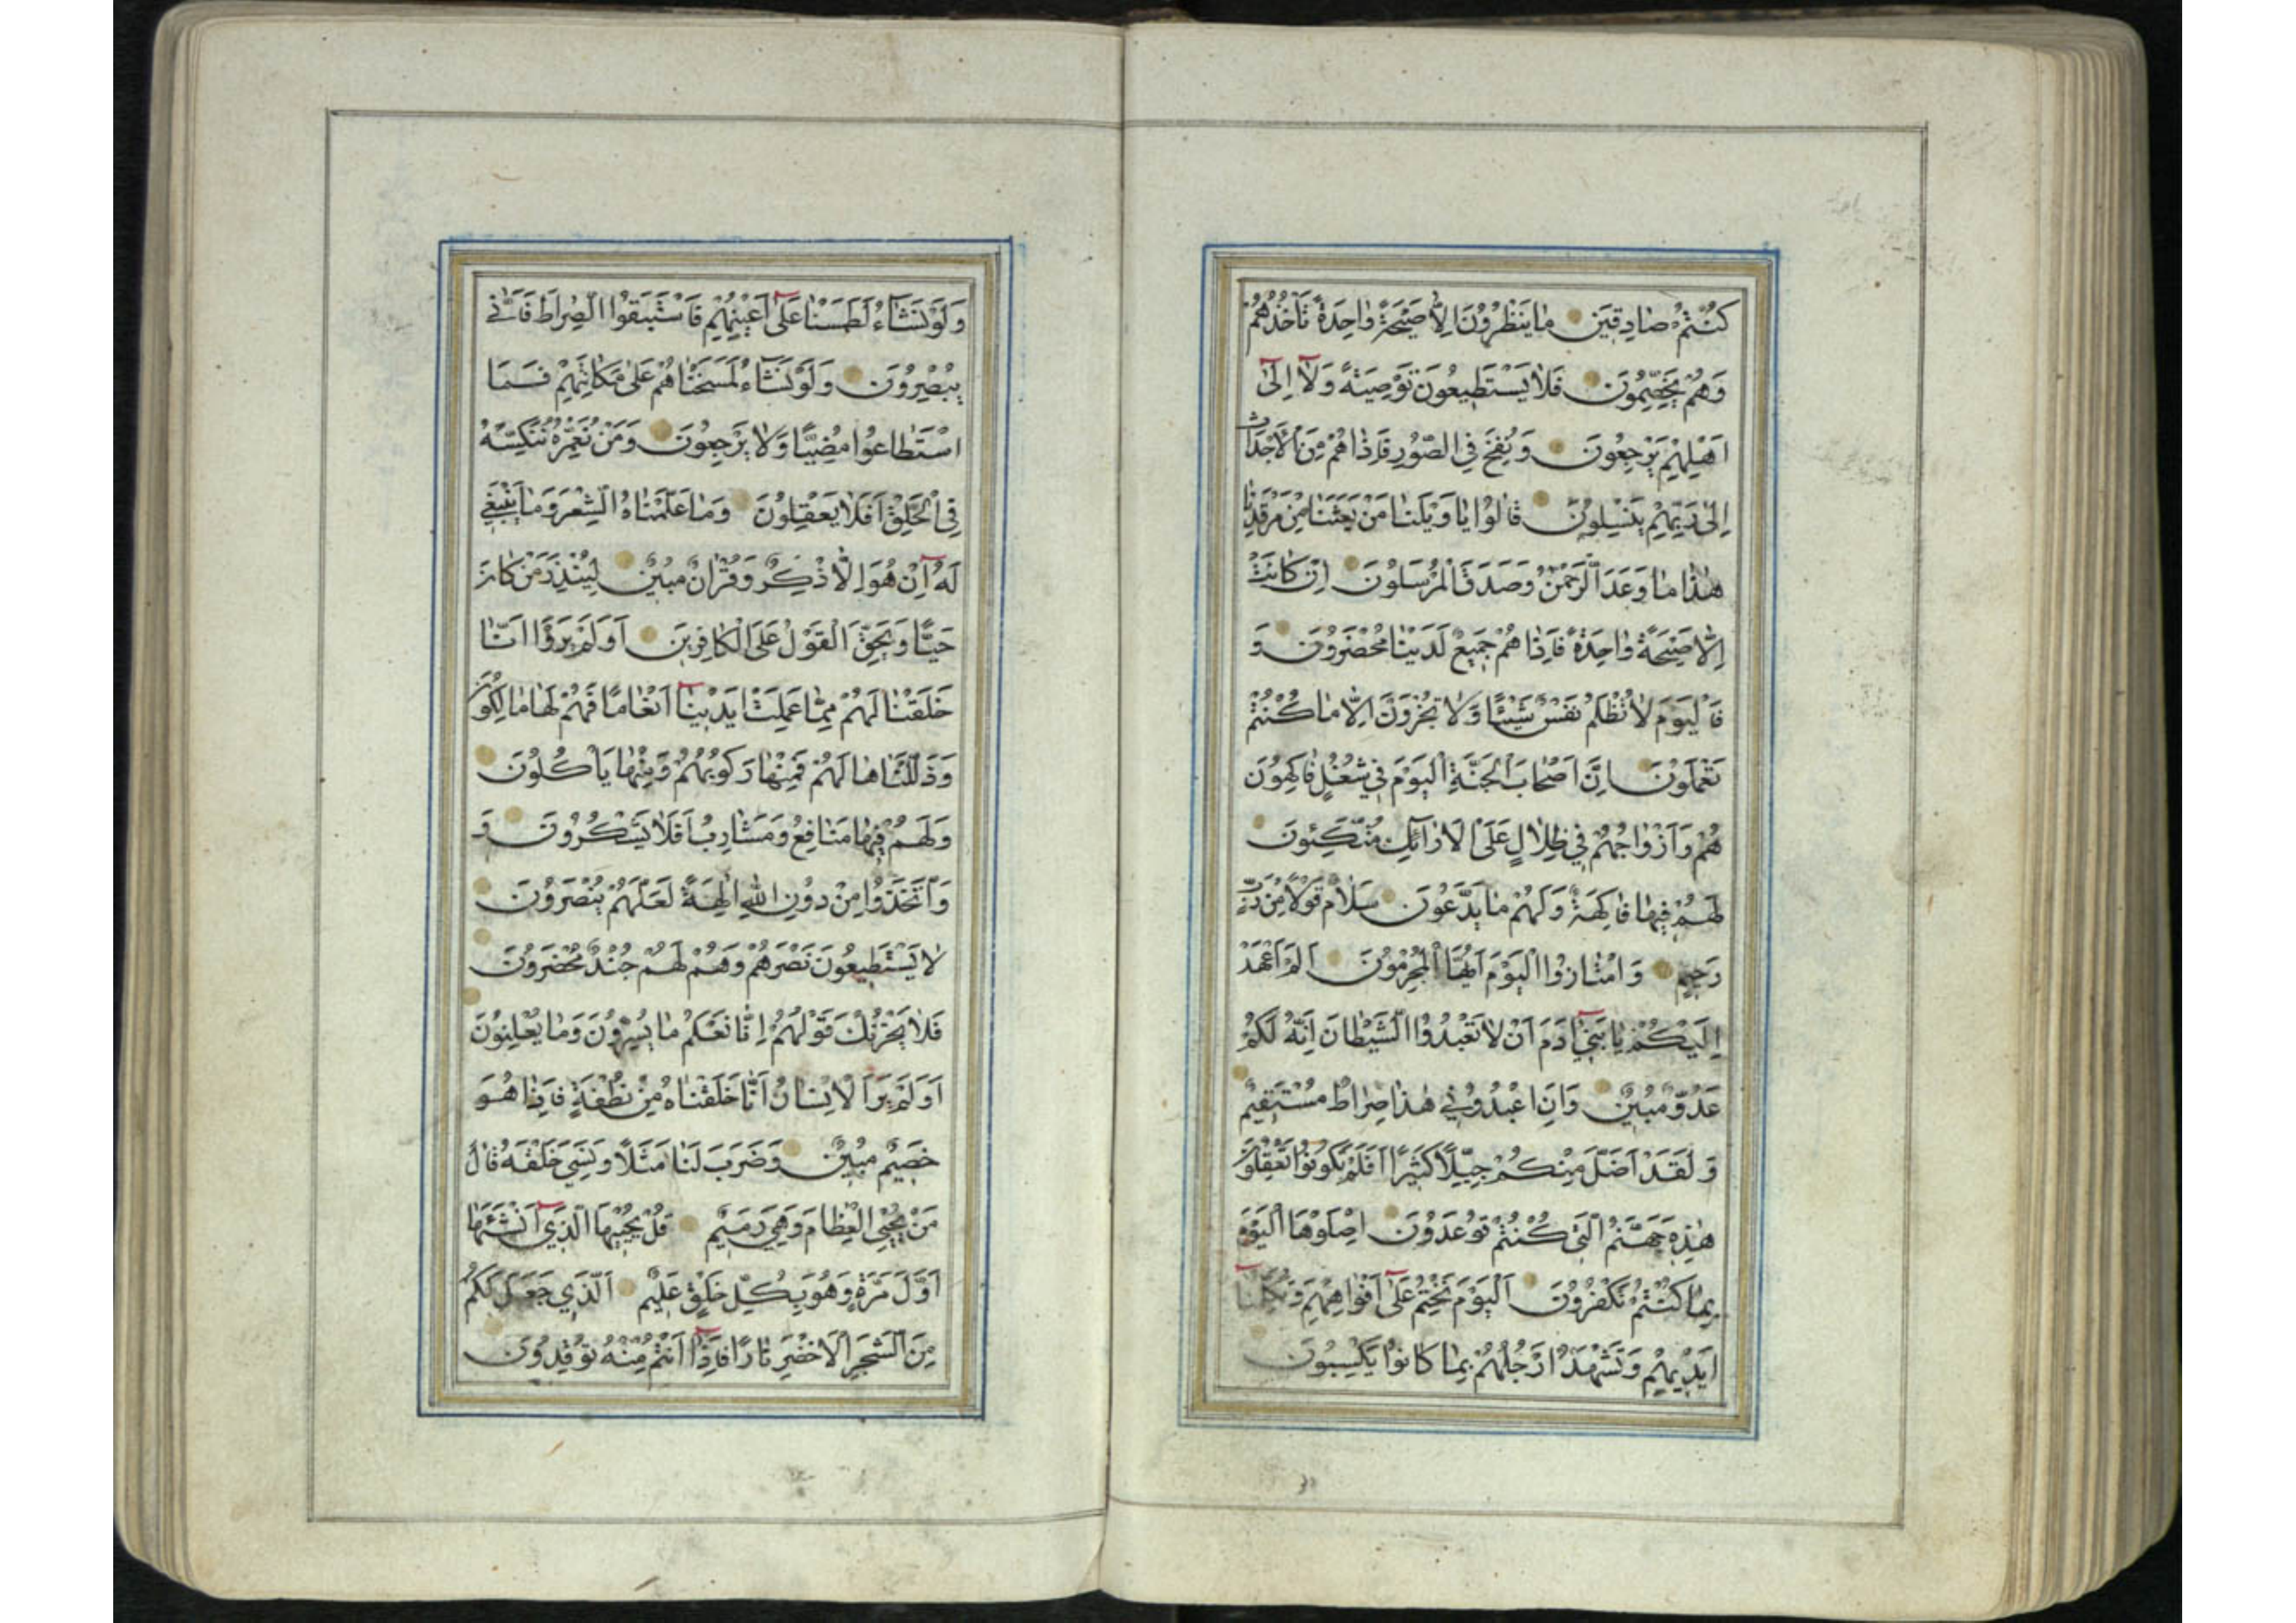 كُنْتُمْ صٰادِقِينَ مٰا يَنْظُرُونَ اِلّٰا صَيْحَةً وٰاحِدَةً تَأْخُذُهُمْ
وَهُمْ يَخِصِّمُونَ فَلٰا يَسْتَطِيعُونَ تَوْصِيَةً وَلٰٓا اِلىٰٓ
اَهْلِهِمْ يَرْجِعُونَ وَنُفِخَ فِي الصُّورِ فَاِذٰا هُمْ مِنَ الْاَجْدٰاثِ
اِلىٰ رَبِّهِمْ يَنْسِلُونَ قٰالُوا يٰا وَيْلَنٰا مَنْ بَعَثَنٰا مِنْ مَرْقَدِنٰا
هٰذٰا مٰا وَعَدَ الرَّحْمٰنُ وَصَدَقَ الْمُرْسَلُونَ اِنْ كٰانَتْ
اِلّٰا صَيْحَةً وٰاحِدَةً فَاِذٰا هُمْ جَمِيعٌ لَدَيْنٰا مُحْضَرُونَ وَ
فَالْيَوْمَ لٰا تُظْلَمُ نَفْسٌ شَيْئًا وَلٰا تُجْزَوْنَ اِلّٰا مٰا كُنْتُمْ
تَعْمَلُونَ اِنَّ اَصْحٰابَ الْجَنَّةِ الْيَوْمَ فِي شُغُلٍ فٰاكِهُونَ
هُمْ وَاَزْوٰاجُهُمْ فِي ظِلٰالٍ عَلَى الْاَرٰٓائِكِ مُتَّكِئُونَ
لَهُمْ فِيهٰا فٰاكِهَةٌ وَلَهُمْ مٰا يَدَّعُونَ سَلٰامٌ قَوْلًا مِنْ رَبٍّ
رَحِيمٍ وَامْتٰازُوا الْيَوْمَ اَيُّهَا الْمُجْرِمُونَ اَلَمْ اَعْهَدْ
اِلَيْكُمْ يٰا بَنِيٓ اٰدَمَ اَنْ لٰا تَعْبُدُوا الشَّيْطٰانَ اِنَّهُ لَكُمْ
عَدُوٌّ مُبِينٌ وَاَنِ اعْبُدُونِي هٰذٰا صِرٰاطٌ مُسْتَقِيمٌ
وَلَقَدْ اَضَلَّ مِنْكُمْ جِبِلًّا كَثِيرًا اَفَلَمْ تَكُونُوا تَعْقِلُونَ
هٰذِهِ جَهَنَّمُ الَّتِي كُنْتُمْ تُوعَدُونَ اِصْلَوْهَا الْيَوْمَ
بِمٰا كُنْتُمْ تَكْفُرُونَ اَلْيَوْمَ نَخْتِمُ عَلىٰٓ اَفْوٰاهِهِمْ وَتُكَلِّمُنٰٓا
اَيْدِيهِمْ وَتَشْهَدُ اَرْجُلُهُمْ بِمٰا كٰانُوا يَكْسِبُونَ
وَلَوْ نَشٰٓاءُ لَطَمَسْنٰا عَلىٰٓ اَعْيُنِهِمْ فَاسْتَبَقُوا الصِّرٰاطَ فَاَنّٰى
يُبْصِرُونَ وَلَوْ نَشٰٓاءُ لَمَسَخْنٰاهُمْ عَلىٰ مَكٰانَتِهِمْ فَمَا
اسْتَطٰاعُوا مُضِيًّا وَلٰا يَرْجِعُونَ وَمَنْ نُعَمِّرْهُ نُنَكِّسْهُ
فِي الْخَلْقِ اَفَلٰا يَعْقِلُونَ وَمٰا عَلَّمْنٰاهُ الشِّعْرَ وَمٰا يَنْبَغِي
لَهُٓ اِنْ هُوَ اِلّٰا ذِكْرٌ وَقُرْاٰنٌ مُبِينٌ لِيُنْذِرَ مَنْ كٰانَ
حَيًّا وَيَحِقَّ الْقَوْلُ عَلَى الْكٰافِرِينَ اَوَلَمْ يَرَوْا اَنّٰا
خَلَقْنٰا لَهُمْ مِمّٰا عَمِلَتْ اَيْدِينٰٓا اَنْعٰامًا فَهُمْ لَهٰا مٰالِكُونَ
وَذَلَّلْنٰاهٰا لَهُمْ فَمِنْهٰا رَكُوبُهُمْ وَمِنْهٰا يَأْكُلُونَ
وَلَهُمْ فِيهٰا مَنٰافِعُ وَمَشٰارِبُ اَفَلٰا يَشْكُرُونَ وَ
وَاتَّخَذُوا مِنْ دُونِ اللّٰهِ اٰلِهَةً لَعَلَّهُمْ يُنْصَرُونَ
لٰا يَسْتَطِيعُونَ نَصْرَهُمْ وَهُمْ لَهُمْ جُنْدٌ مُحْضَرُونَ
فَلٰا يَحْزُنْكَ قَوْلُهُمْ اِنّٰا نَعْلَمُ مٰا يُسِرُّونَ وَمٰا يُعْلِنُونَ
اَوَلَمْ يَرَ الْاِنْسٰانُ اَنّٰا خَلَقْنٰاهُ مِنْ نُطْفَةٍ فَاِذٰا هُوَ
خَصِيمٌ مُبِينٌ وَضَرَبَ لَنٰا مَثَلًا وَنَسِيَ خَلْقَهُ قٰالَ
مَنْ يُحْيِي الْعِظٰامَ وَهِيَ رَمِيمٌ قُلْ يُحْيِيهَا الَّذِيٓ اَنْشَأَهٰا
اَوَّلَ مَرَّةٍ وَهُوَ بِكُلِّ خَلْقٍ عَلِيمٌ اَلَّذِي جَعَلَ لَكُمْ
مِنَ الشَّجَرِ الْاَخْضَرِ نٰارًا فَاِذٰٓا اَنْتُمْ مِنْهُ تُوقِدُونَ